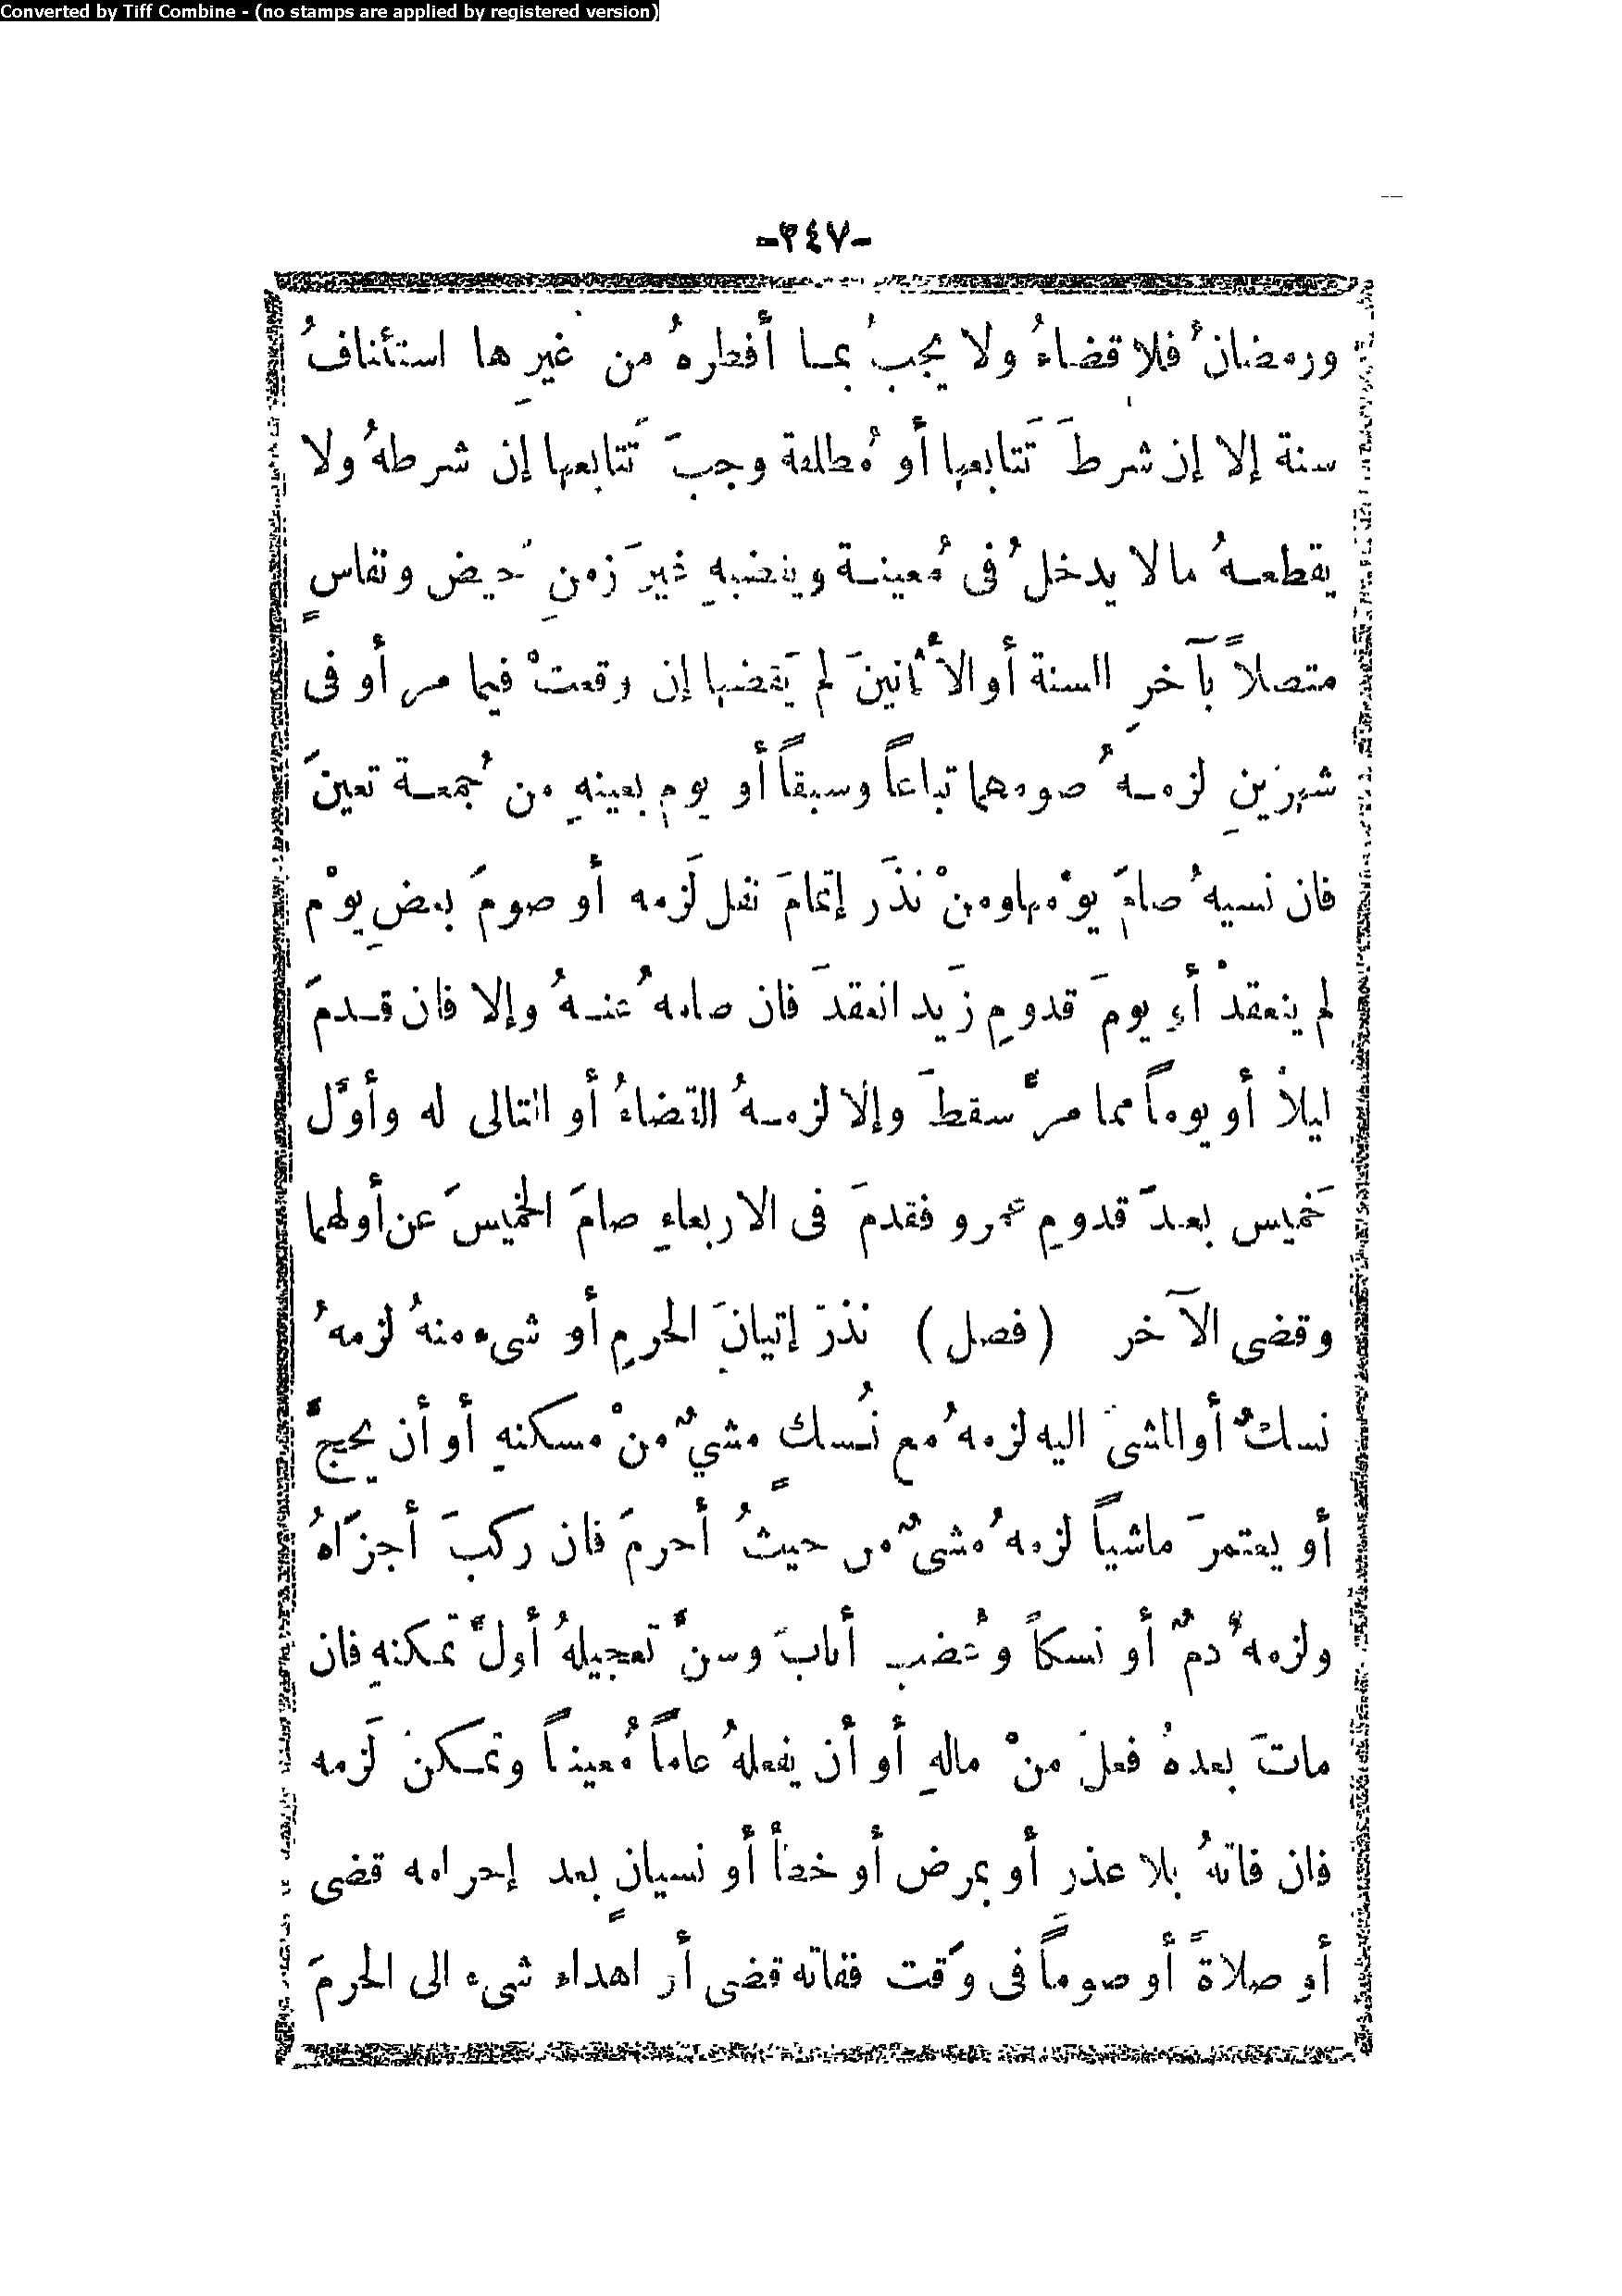 Converted by Tiff Combine - (no stamps are applied by registered version)
-٣٤٧-
ورمضانُ فلا قضاءُ ولا يجبُ بما أفطرهُ من غيرِها استئنافُ
سنة إلا إن شرطَ تَتابعها أو مُطلقة وجبَ تَتابعها إن شرطهُ ولا
يقطعهُ مالا يدخلُ فى مُعينة ويقضيهِ غيرَ زمنِ حَيض ونفاسٍ
متصلاً بآخرِ السنة أو الأثانينَ لم يَقضها إن وقعتْ فيما مر أو فى
شهرينِ لزمهُ صومهما تباعاً وسبقاً أو يومٍ بعينهِ من جُمعة تعينَ
فان نسيهُ صامَ يوْمها ومنْ نذَر إتمامَ نفل لَزمه أو صومَ بعضِ يوْم
لم ينعقدْ أو يومَ قدومِ زَيد انعقدَ فان صامهُ عنهُ وإلا فان قدمَ
ليلاً أو يوماً مما مرَّ سقطَ وإلا لزمهُ القضاءُ أو التالى له وأوَّل
خَميس بعدَ قدومِ عمرو فقدمَ فى الاربعاءِ صامَ الخميسَ عن أولهما
وقضى الآخر (فصل) نذرَ إتيانَ الحرمِ أو شىء منهُ لزمهُ
نسكٌ أو المشىَ اليه لزمهُ مع نُسكٍ مشيٌ منْ مسكنهِ أو أن يحجَّ
أو يعتمرَ ماشياً لزمهُ مشىٌ من حيثُ أحرمَ فان ركبَ أجزَأهُ
ولزمهُ دمٌ أو نسكاً وعُضب أنابَ وسنَّ تعجيلهُ أولَّ تمَكنهِ فان
ماتَ بعدهُ فعلَ منْ مالهِ أو أن يفعلهُ عاماً مُعيناً وتمكنَ لَزمه
فان فاتهُ بلا عذر أو بمرض أو خطأ أو نسيانٍ بعد إحرامه قضى
أو صلاةً أو صوماً فى وَقت ففاته قضى أو اهداء شىء الى الحرمَ